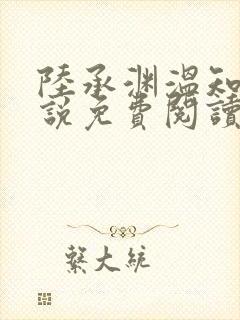 陸承淵溫知
說免費閱讀
繫大統